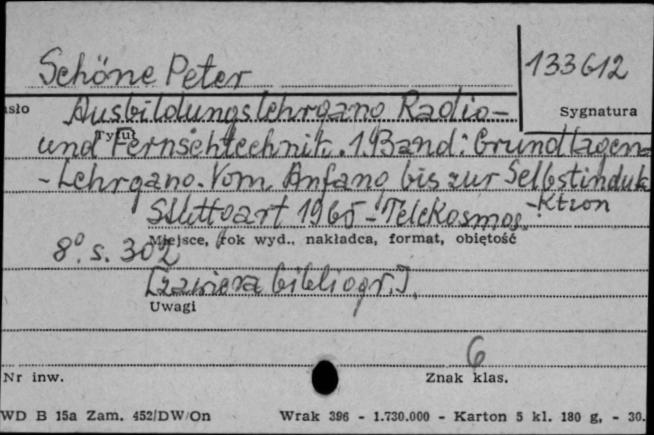 Schöne Peter
133612
Sygnatura
Ausbildungslehrgang Radio-
Tytuł
und Fernsehtechnik. 1. Band: Grundlagen-
-Lehrgang. Vom Anfang bis zur Selbstinduk
-ktion
Stuttgart 1965 - Telekosmos.
Miejsce, rok wyd., nakładca, format, obiętość
8°. s. 302
[zawiera bibliogr.]
Uwagi
6
Nr inw.
Znak klas.
WD B 15a Zam. 452/DW/On
Wrak 396 - 1.730.000 - Karton 5 kl. 180 g, - 30.